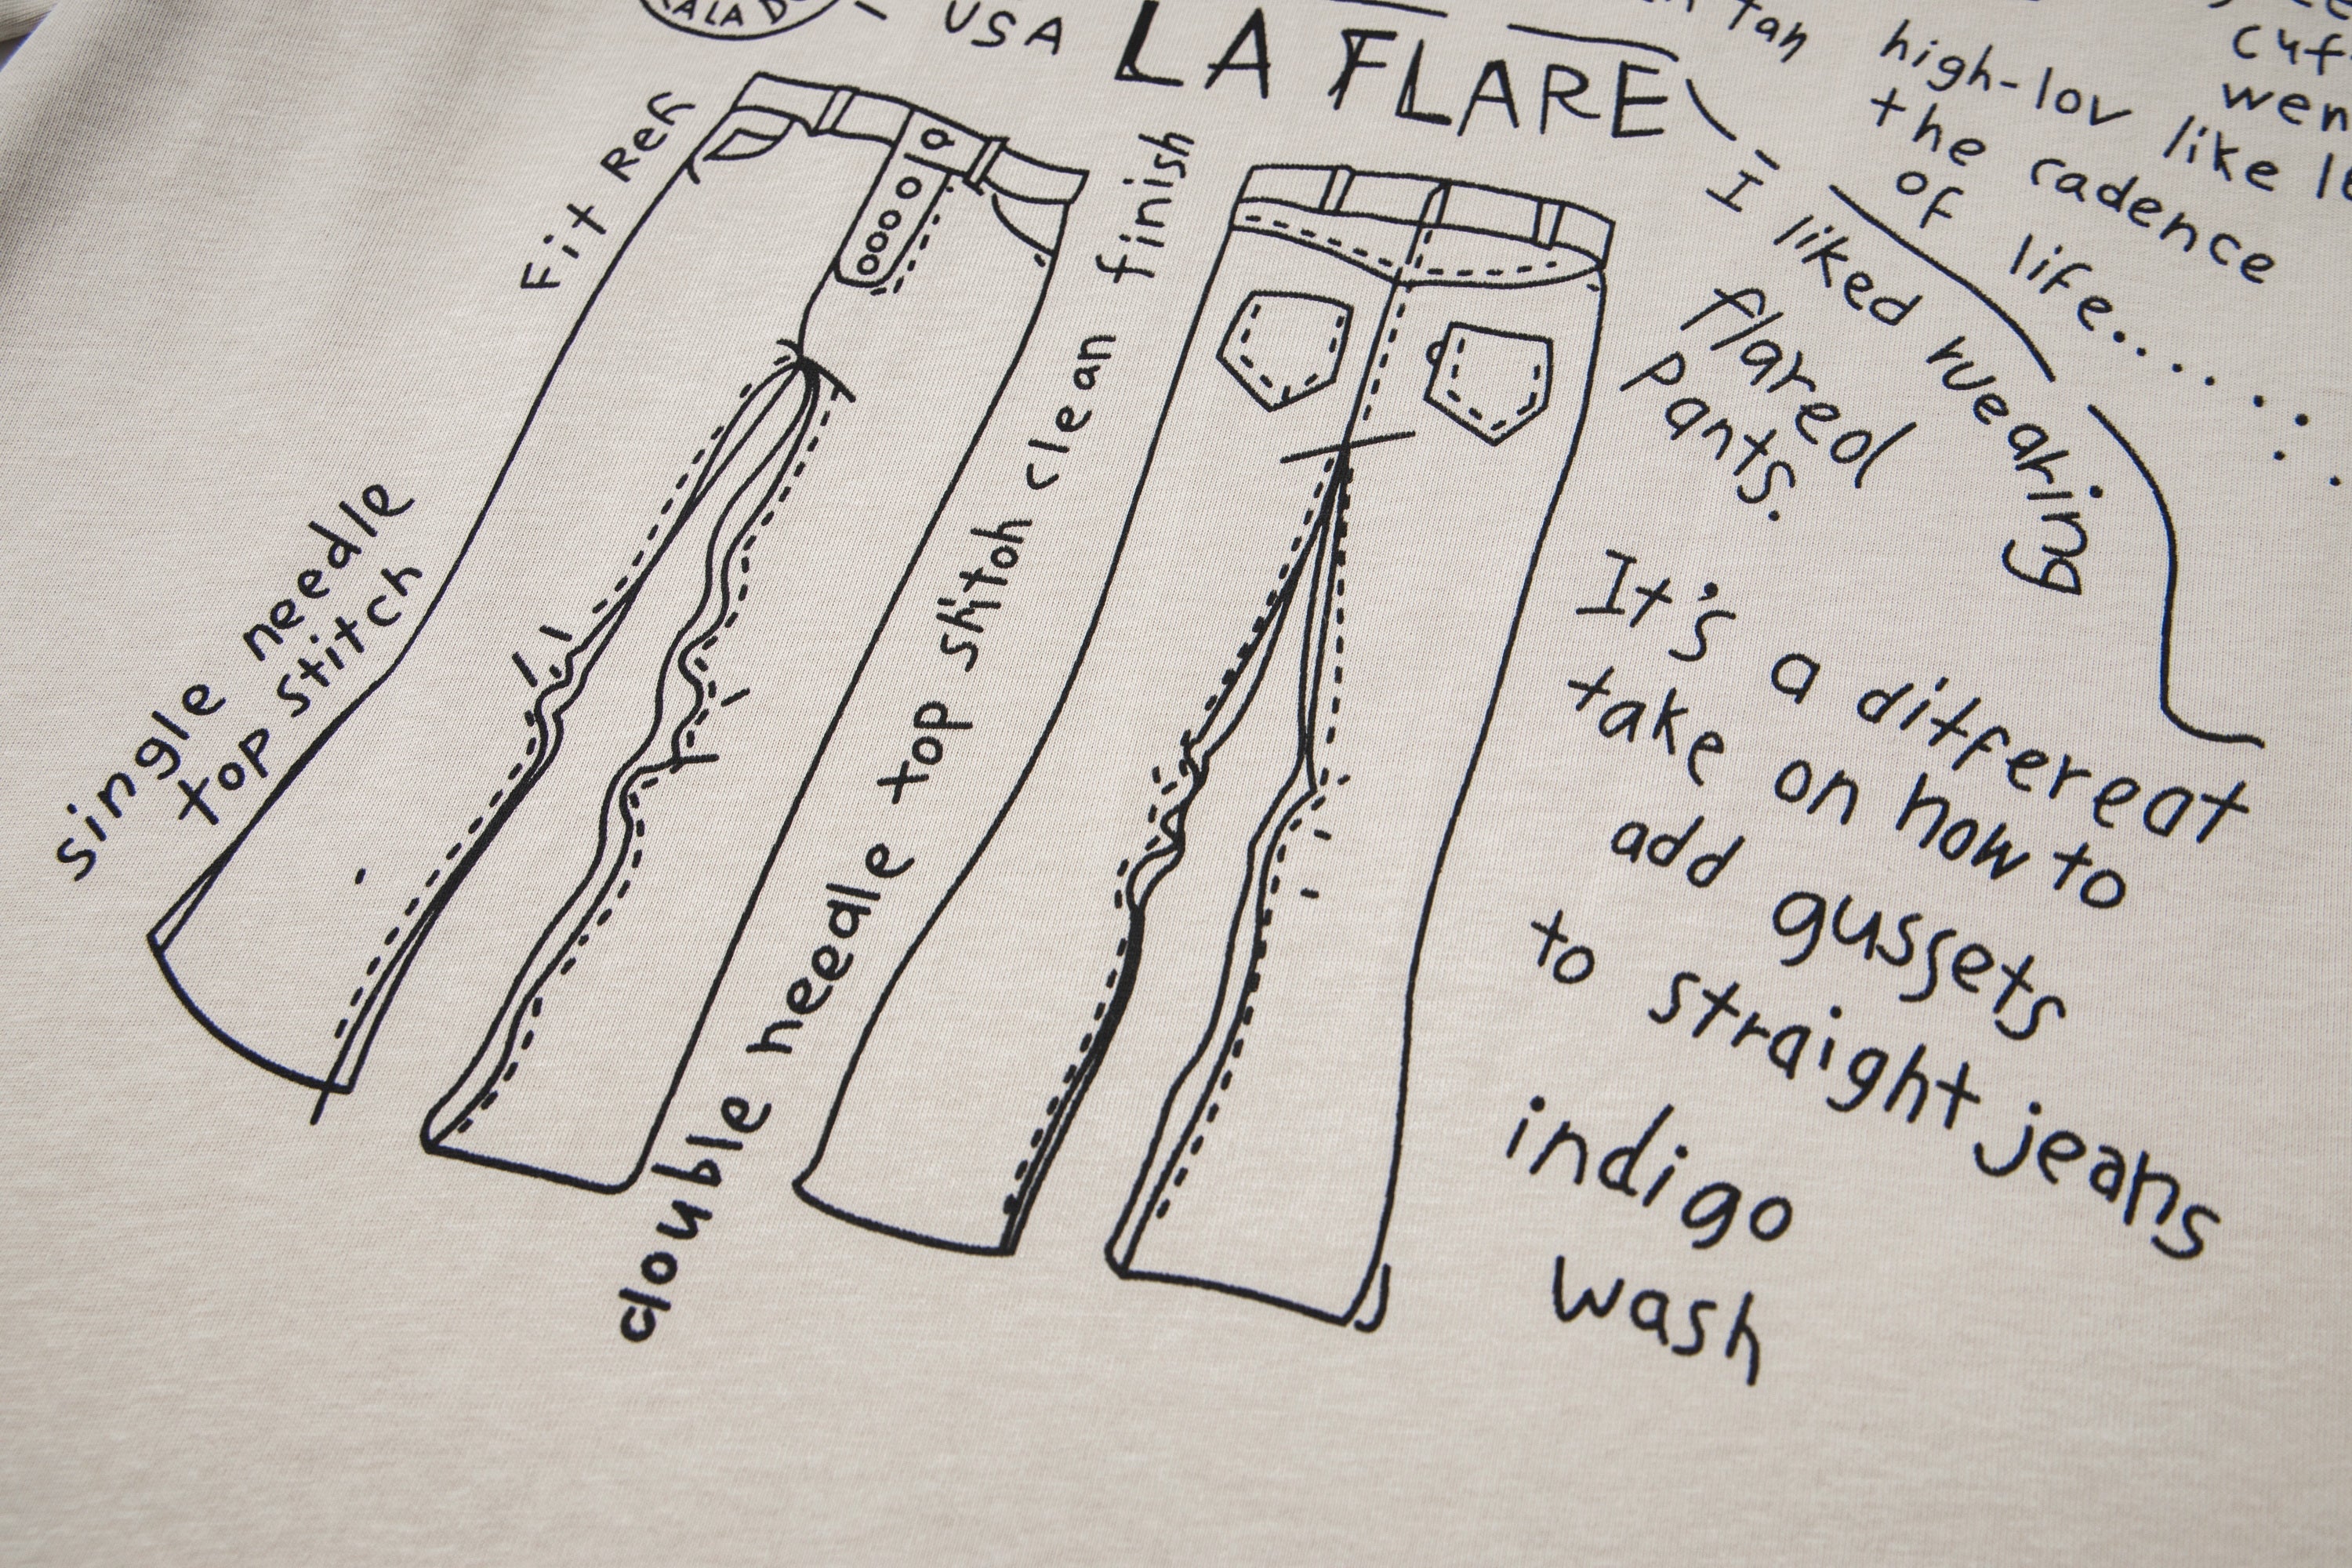 USA
LA FLARE
tan high-lov
the cadence
of life.....
like
I liked ruearing
flared
pants.
Fit Reh
single needle
top stitch
double needle top shitoh clean finish
It's a ditfereat
take on how to
add gussets
to straight jeans
indigo
wash